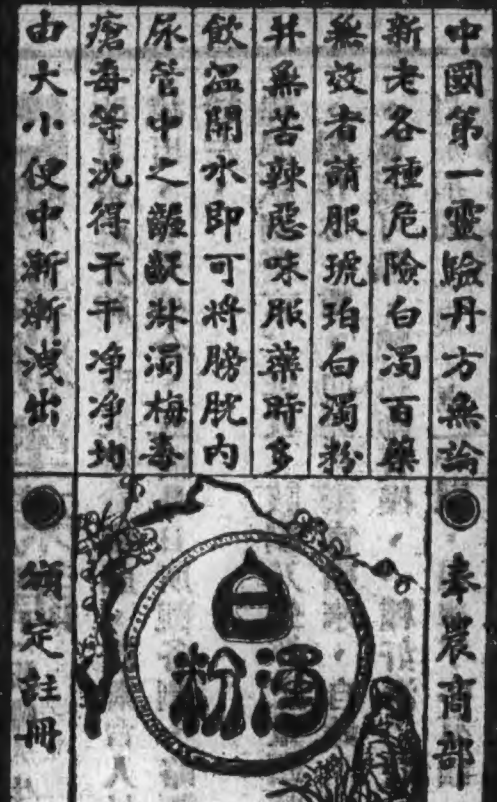 中國第一靈驗丹方無論
新老各種危險白濁百藥
無效者請服琥珀白濁粉
井無苦辣惡味服藥時多
飲溫開水即可將膀胱內
尿管中之齷齪淋濁梅毒
瘡毒等洗得干干净净均
由大小便中漸漸洩出
奉農商部
白
濁粉
頒定註冊